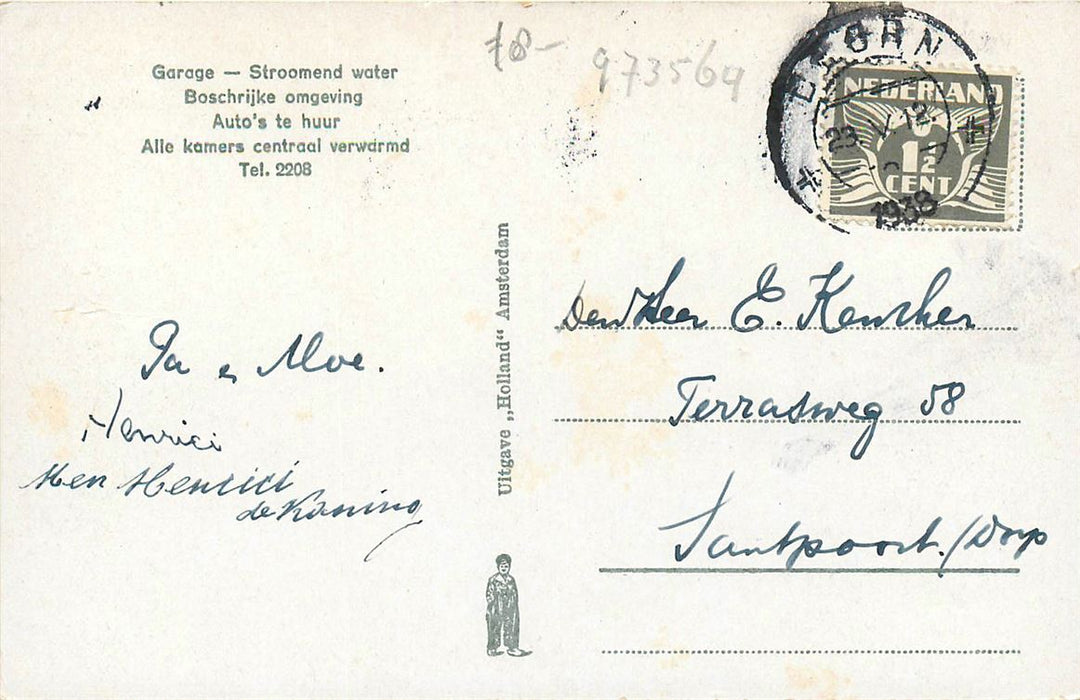 Garage — Stroomend water
Boschrijke omgeving
Auto's te huur
Alle kamers centraal verwarmd
Tel. 2208
78-
973564
NEDERLAND
1½
CENT
23.V.12
1938
Pa e Moe.
Henrici
Henrici
de Koning
Uitgave „Holland" Amsterdam
Den Heer E. Keusher
Terrasweg 58
Santpoort./Dorp